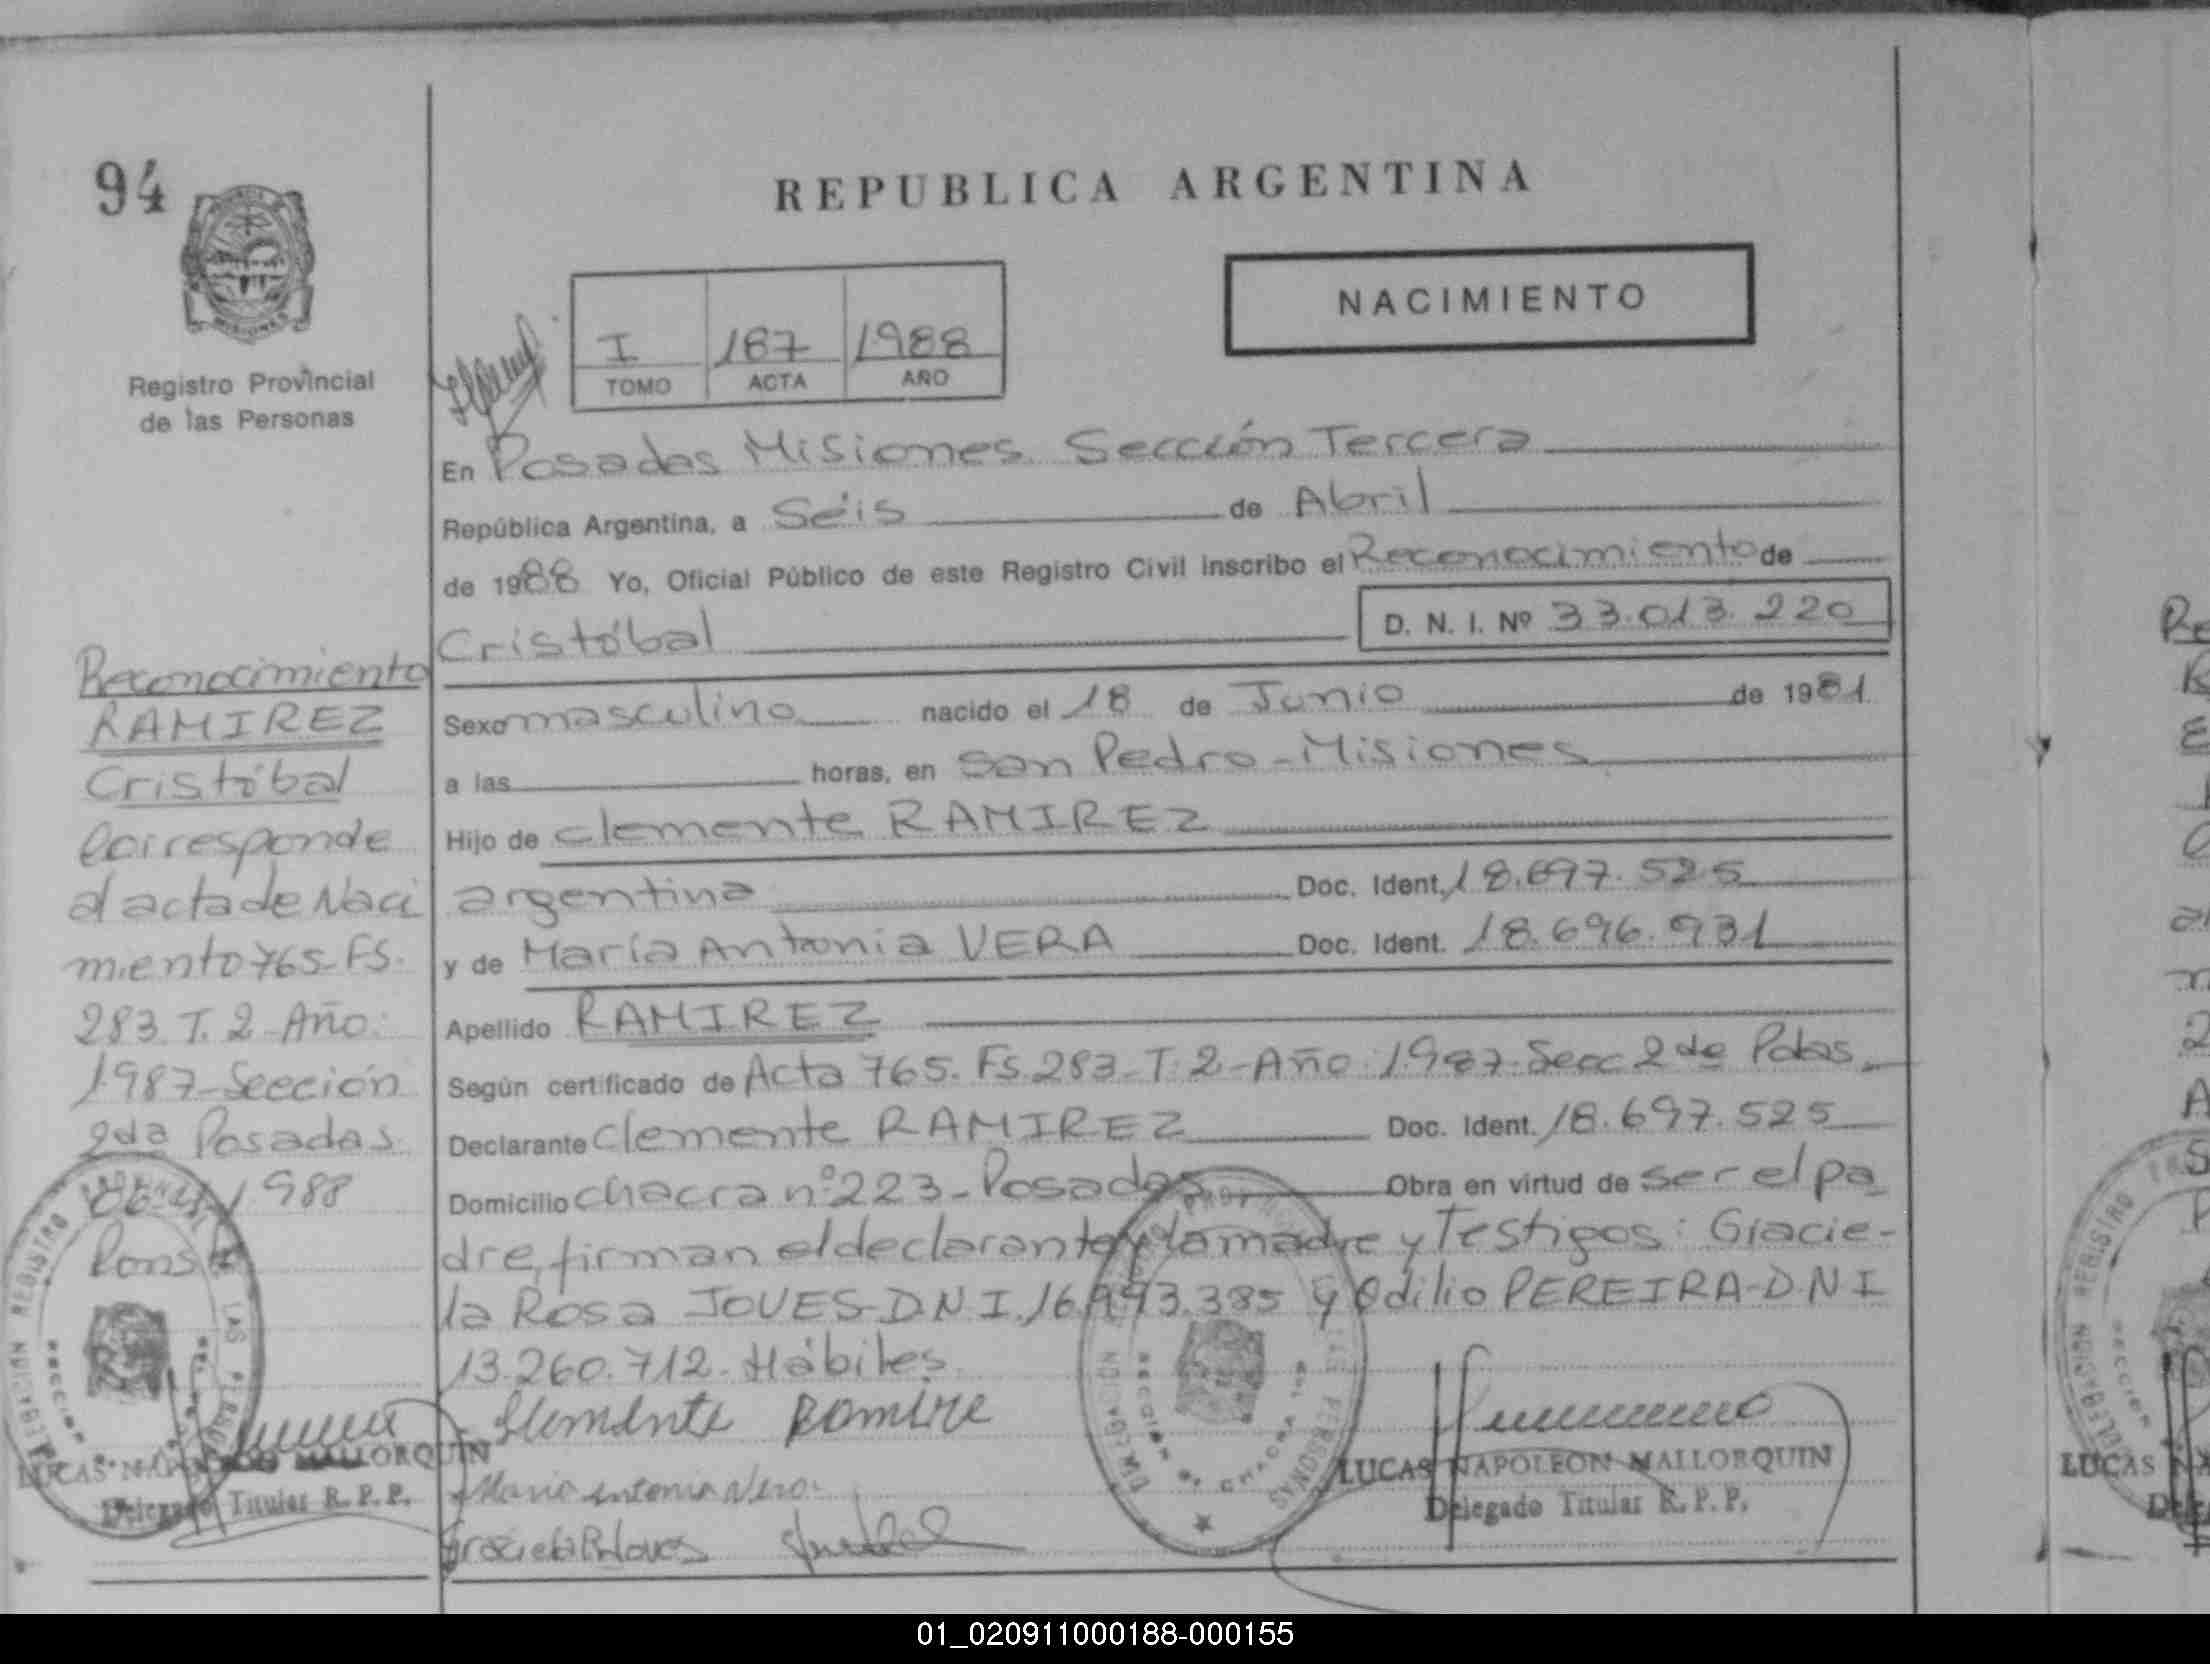 94
REPUBLICA ARGENTINA
MISIONES
Registro Provincial
de las Personas
I 187 1988
TOMO ACTA AÑO
NACIMIENTO
En Posadas Misiones. Sección Tercera
República Argentina, a Séis de Abril
de 1988 Yo, Oficial Público de este Registro Civil inscribo el Reconocimiento de
Cristóbal D. N. I. Nº 33.013.220
Sexo masculino nacido el 18 de Junio de 1981
a las horas, en San Pedro - Misiones
Hijo de Clemente RAMIREZ
argentina Doc. Ident. 18.697.525
y de María Antonia VERA Doc. Ident. 18.696.931
Apellido RAMIREZ
Según certificado de Acta 765. Fs. 283 - T. 2 - Año 1987. Secc 2da Pdas.
Declarante Clemente RAMIREZ Doc. Ident. 18.697.525
Domicilio chacra nº 223 - Posadas Obra en virtud de ser el pa
dre, firman el declarante y la madre y Testigos: Gracie-
la Rosa JOVES - D.N.I. 16.993.385 y Odilio PEREIRA - D.N.I
13.260.712 - Hábiles.
Clemente Ramire
Maria Antonia Vera
LUCAS NAPOLEON MALLORQUIN
Delegado Titular R. P. P.
Reconocimiento
RAMIREZ
Cristóbal
Corresponde
al acta de Naci
miento 765 - FS.
283 T. 2 - Año:
1987 - Sección
2da Posadas
06-4-1988
LUCAS NAPOLEON MALLORQUIN
Delegado Titular R. P. P.
LUCAS
01_020911000188-000155